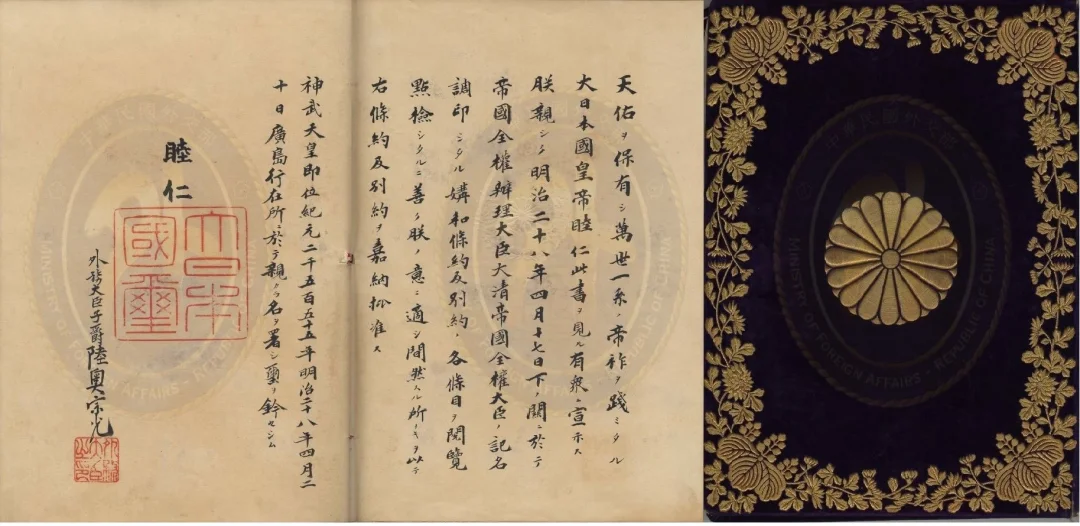 天佑ヲ保有シ萬世一系ノ帝祚ヲ踐ミタル
大日本國皇帝睦仁此書ヲ見ル有衆ニ宣示ス
朕親シク明治二十八年四月十七日下ノ關ニ於テ
帝國全權辨理大臣大清帝國全權大臣ノ記名
調印シタル媾和條約及別約ノ各條目ヲ閲覽
點檢シタルニ善ク朕カ意ニ適シ間然スル所ナキヲ以テ
右條約及別約ヲ嘉納批准ス
神武天皇即位紀元二千五百五十五年明治二十八年四月二
十日廣島行在所ニ於テ親ラ名ヲ署シ璽ヲ鈐セシム
睦仁
大日本
國璽
外務大臣子爵陸奧宗光
外務大臣之印
中華民國外交部
MINISTRY OF FOREIGN AFFAIRS - REPUBLIC OF CHINA